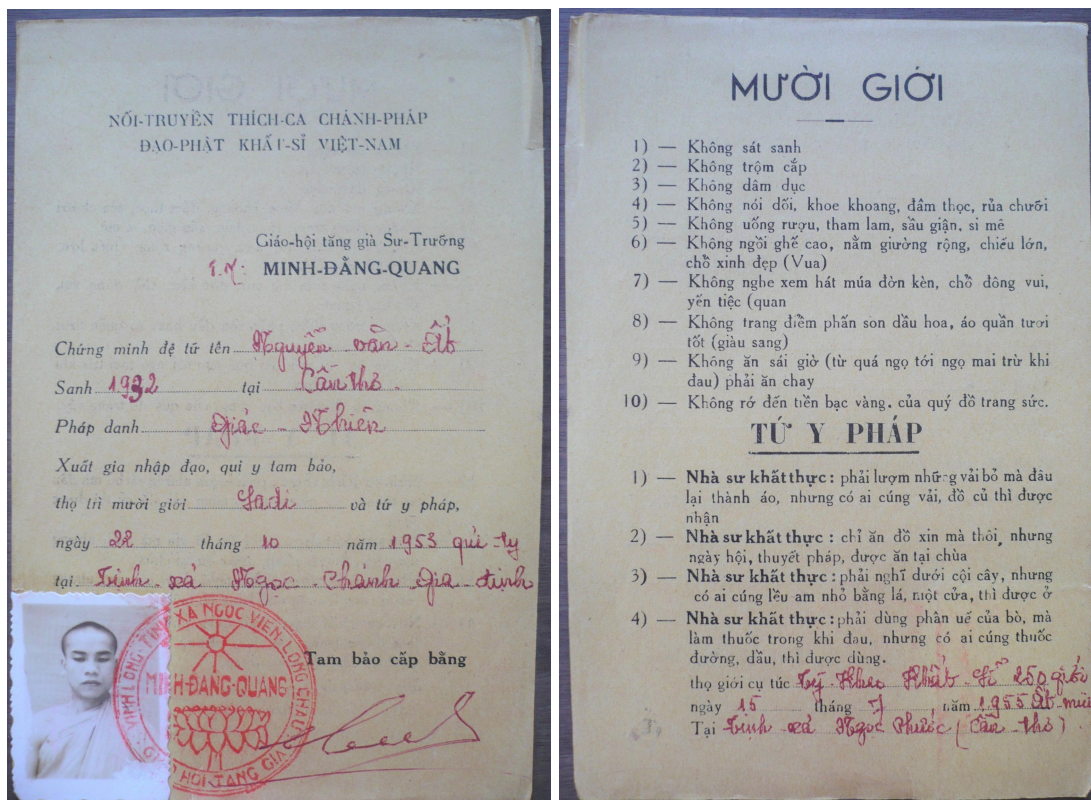 NỐI-TRUYỀN THÍCH-CA CHÁNH-PHÁP
ĐẠO-PHẬT KHẤT-SĨ VIỆT-NAM
Giáo-hội tăng già Sư-Trưởng
T.M: MINH-ĐĂNG-QUANG
Chứng minh đệ tử tên Nguyễn văn - Ất
Sanh 1932 tại Cần thơ.
Pháp danh Giác - Nhiên
Xuất gia nhập đạo, qui y tam bảo,
thọ trì mười giới Sadi và tứ y pháp,
ngày 22 tháng 10 năm 1953 qúi-tỵ
tại Tịnh - xá Ngọc - Chánh Gia - định
Tam bảo cấp bằng
XÁ NGỌC VIÊN-LONG CHÂU
MINH-ĐĂNG-QUANG
HỘI-TĂNG GIÀ
MƯỜI GIỚI
1) — Không sát sanh
2) — Không trộm cắp
3) — Không dâm dục
4) — Không nói dối, khoe khoang, đâm thọc, rủa chưởi
5) — Không uống rượu, tham lam, sầu giận, si mê
6) — Không ngồi ghế cao, nằm giường rộng, chiếu lớn,
chỗ xinh đẹp (Vua)
7) — Không nghe xem hát múa đờn kèn, chỗ đông vui,
yến tiệc (quan
8) — Không trang điểm phấn son dầu hoa, áo quần tươi
tốt (giàu sang)
9) — Không ăn sái giờ (từ quá ngọ tới ngọ mai trừ khi
đau) phải ăn chay
10) — Không rớ đến tiền bạc vàng, của quý đồ trang sức.
TỨ Y PHÁP
1) — Nhà sư khất thực: phải lượm những vải bỏ mà đâu
lại thành áo, nhưng có ai cúng vải, đồ củ thì được
nhận
2) — Nhà sư khất thực: chỉ ăn đồ xin mà thôi, nhưng
ngày hội, thuyết pháp, được ăn tại chùa
3) — Nhà sư khất thực: phải nghĩ dưới cội cây, nhưng
có ai cúng lều am nhỏ bằng lá, một cửa, thì được ở
4) — Nhà sư khất thực: phải dùng phân uế của bò, mà
làm thuốc trong khi đau, nhưng có ai cúng thuốc
đường, dầu, thì được dùng.
thọ giới cụ túc Tỳ - Kheo Khất - Sĩ 250 giới
ngày 15 tháng 7 năm 1955 Ất-mùi
Tại Tịnh - xá Ngọc Phước (Cần - thơ)